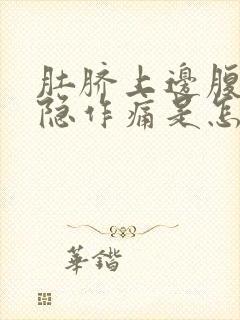 肚脐上邊腹
隐作痛是怎
華鍇